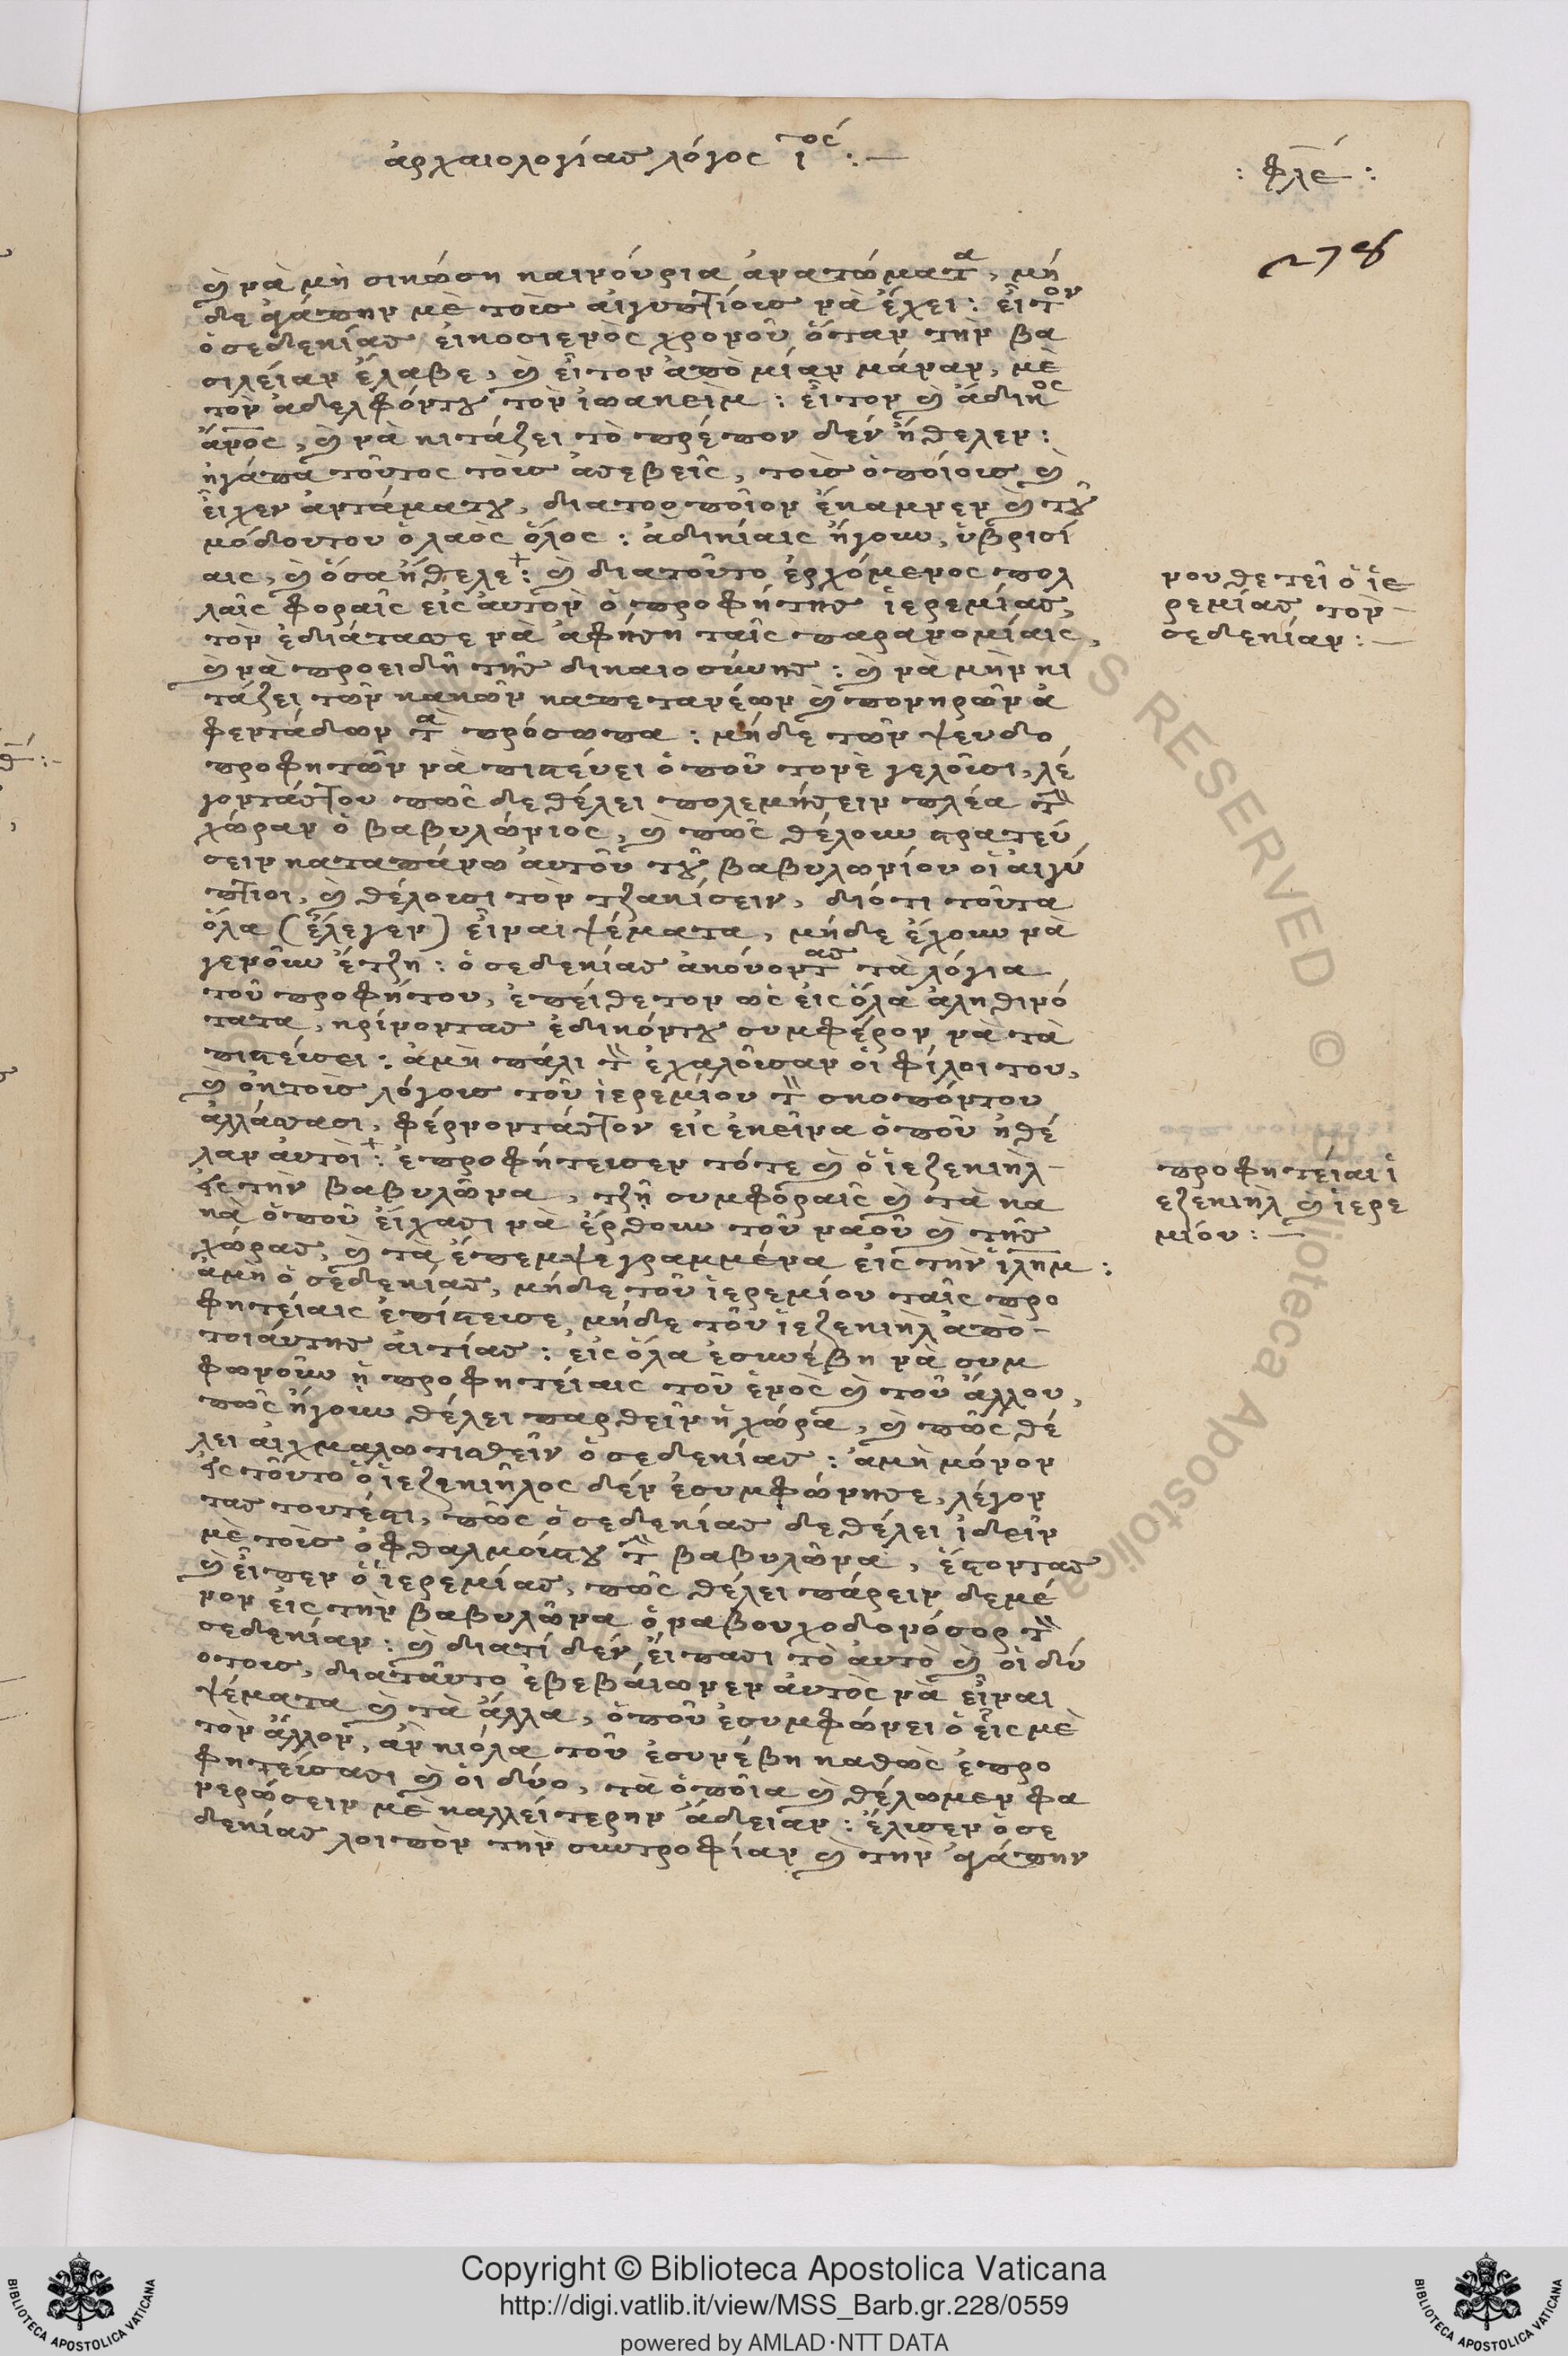 ἀρχαιολογίας λόγος ι̅ος : —
: φλε :
278
ὲ νὰ μὴ σικώση καινούρια ἀνατώματα, μή
δε ἀγάπην μὲ τοὺς αἰγυπτίους νὰ ἔχει : εἶτον
ὁ σεδεκίας εἰκοσιενὸς χρονοῦ ὅταν τὴν βα
σιλείαν ἔλαβε, ὲ εἶτον ἀπὸ μίαν μάναν, μὲ
τὸν ἀδελφόντου τὸν ἰωακεὶμ : εἶτον ὲ ἄδικος
ἄνος, ὲ νὰ κιτάζει τὸ πρέπον δὲν ἤθελεν :
ἠγάπα τοῦτος τοὺς ἀσεβεῖς, τοὺς ὁποίους ὲ
εἶχεν ἀντάματου, διατοοποῖον ἔκαμνεν ὲ τοῦ
μόδουτου ὁ λαὸς ὅλος : ἀδικίαις ἤγουν, ὑβρισί
αις, ὲ ὅσα ἤθελε : ὲ διατοῦτο ἐρχόμενος πολ
λαῖς φοραῖς εἰς αὐτὸν ὁ προφήτης ἱερεμίας,
τὸν ἐδιάτασε νὰ ἀφήση ταῖς παρανομίαις,
ὲ νὰ προειδῆ τῆς δικαιοσύνης : ὲ νὰ μὴν κι
τάζει τῶν κακῶν καπετανέων ὲ πονηρῶν ἀ
φεντάδων τὰ πρόσωπα : μήδε τῶν ψευδο
προφητῶν νὰ πιστεύει ὁποῦ τονὲ γελοῦσι, λέ
γοντάςτου πῶς δε θέλει πολεμήσειν πλέα τὴν
χώραν ὁ βαβυλώνιος, ὲ πῶς θέλουν στρατεύ
σειν καταπάνω αὐτοῦ τοῦ βαβυλωνίου οἱ αἰγύ
πτιοι, ὲ θέλουσι τὸν τζακίσειν, διότι τοῦτα
ὅλα (ἔλεγεν) εἶναι ψέματα, μήδε ἔχουν νὰ
γενοῦν ἔτζη : ὁ σεδεκίας ἀκούοντας τὰ λόγια
τοῦ προφήτου, ἐπείθετον ὡς εἰς ὅλα ἀληθινό
τατα, κρίνοντας ἐδικόντου συμφέρον νὰ τὰ
πιστεύσει : ἀμὴ πάλι τὸν ἐχαλοῦσαν οἱ φίλοι του,
ὲ ἐκ τοὺς λόγους τοῦ ἱερεμίου τὸν σκοπόντου
ἀλλάσασι, φέρνοντάςτον εἰς ἐκεῖνα ὁποῦ ἠθέ
λαν αὐτοὶ : ἐπροφήτευσεν τότε ὲ ὁ ἰεζεκιὴλ
ἐς τὴν βαβυλῶνα, τζῆ συμφοραῖς ὲ τὰ κα
κὰ ὁποῦ εἴχασι νὰ ἔρθουν τοῦ ναοῦ ὲ τῆς
χώρας, ὲ τὰ ἔπεμψε γραμμένα εἰς τὴν ἱλημ :
ἀμὴ ὁ σεδεκίας, μήδε τοῦ ἱερεμίου ταῖς προ
φητείαις ἐπίστευσε, μήδε τοῦ ἰεζεκιὴλ ἀπὸ
τοιάυτης αἰτίας : εἰς ὅλα ἐσυνέβη νὰ συμ
φωνοῦν ἡ προφητείαις τοῦ ἑνὸς ὲ τοῦ ἄλλου,
πῶς ἤγουν θέλει παρθεῖν ἡ χώρα, ὲ πῶς θέ
λει αἰχμαλωτισθεῖν ὁ σεδεκίας : ἀμὴ μόνον
ἐς τοῦτο ὁ ἰεζεκιῆλος δὲν ἐσυμφώνησε, λέγον
τας τουτέστι, πῶς ὁ σεδεκίας δε θέλει ἰδεῖν
μὲ τοὺς ὀφθαλμούςτου τὴν βαβυλῶνα, ἔστοντας
ὲ εἶπεν ὁ ἱερεμίας, πῶς θέλει πάρειν δεμέ
νον εἰς τὴν βαβυλῶνα ὁ ναβουχοδονόσορ τὸν
σεδεκίαν : ὲ διατί δὲν εἴπασι τὸ αὐτὸ ὲ οἱ δύ
ο τους, διατᾶυτο ἐβεβάιωνεν αὐτὸς νὰ εἶναι
ψέματα ὲ τὰ ἄλλα, ὁποῦ ἐσυμφώνει ὁ εἷς μὲ
τὸν ἄλλον, ἀν κιόλα τοῦ ἐσυνέβη καθὼς ἐπρο
φητεύσασι ὲ οἱ δύο, τὰ ὁποῖα ὲ θέλωμεν φα
νερώσειν μὲ καλλείτερην ἄδειαν : ἔλυσεν ὁ σε
δεκίας λοιπὸν τὴν συντροφίαν ὲ τὴν ἀγάπην
νουθετεῖ ὁ ἱε
ρεμίας τὸν
σεδεκίαν : —
προφητείαι ἰ
εζεκιὴλ ὲ ἱερε
μίου : —
Copyright © Biblioteca Apostolica Vaticana
http://digi.vatlib.it/view/MSS_Barb.gr.228/0559
powered by AMLAD·NTT DATA
BIBLIOTECA APOSTOLICA VATICANA
BIBLIOTECA APOSTOLICA VATICANA